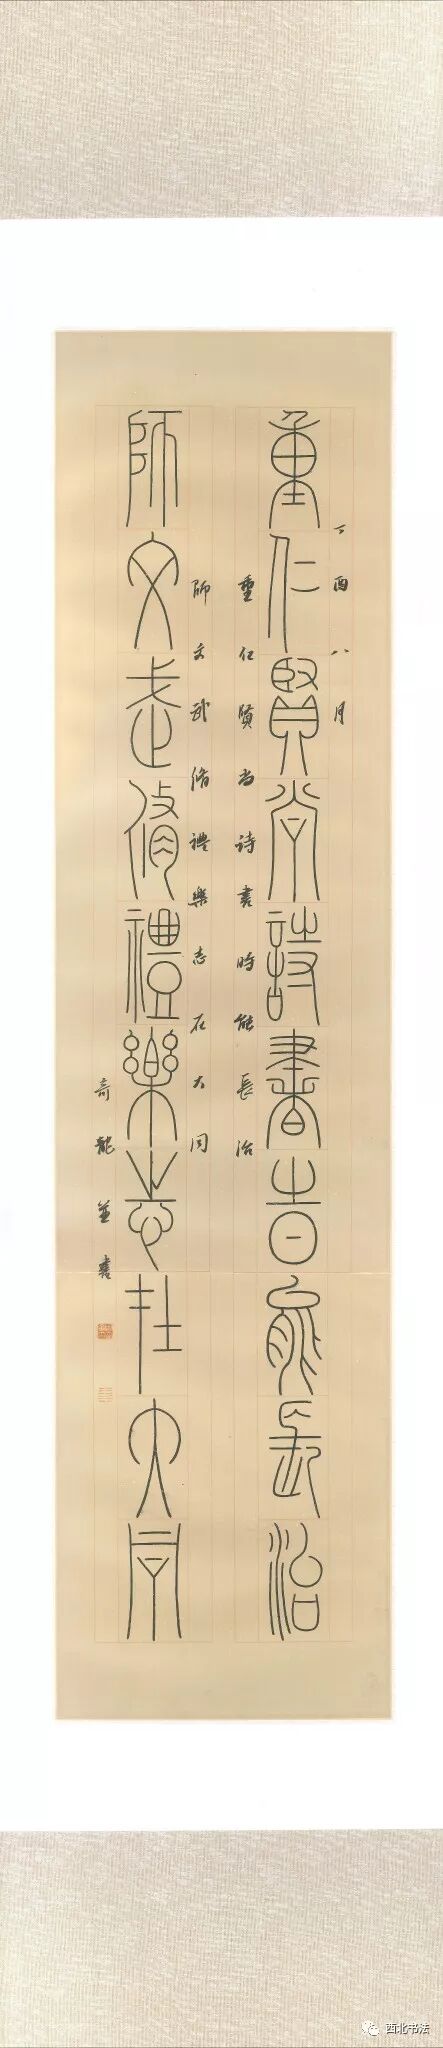 丁酉八月
重仁賢尚詩書時能長治
重仁贤尚詩書時能長治
師文武脩禮樂志在大同
師文武脩禮樂志在大同
奇龍並書
西北书法